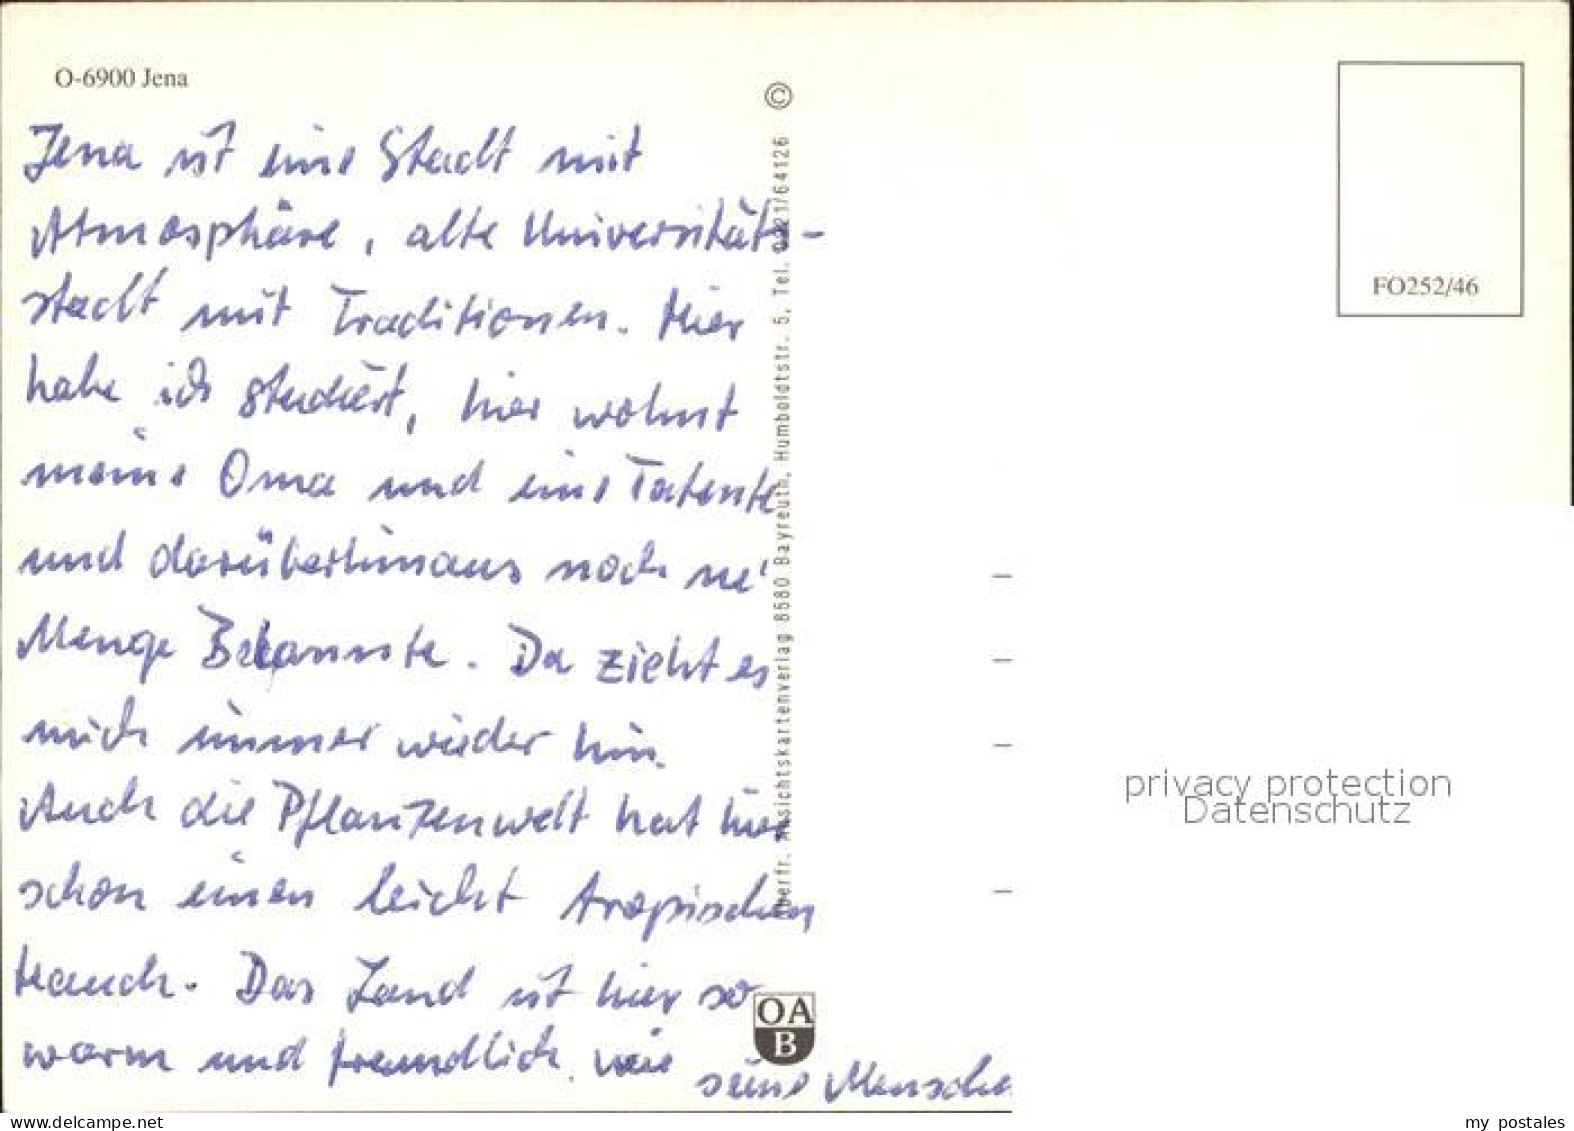 O-6900 Jena
Jena ist eine Stadt mit
Atmosphäre, alte Universitäts-
stadt mit Traditionen. Hier
habe ich studiert, hier wohnt
meine Oma und eine Tatente
und darüberhinaus noch ne'
Menge Bekannte. Da zieht es
mich immer wieder hin.
Auch die Pflanzenwelt hat hier
schon einen leicht tropischen
Hauch. Das Land ist hier so
warm und freundlich wie
seine Mensche
©
Oberfr. Ansichtskartenverlag 8580 Bayreuth, Humboldtstr. 5, Tel. 0921/64126
OA
B
FO252/46
privacy protection
Datenschutz
www.delcampe.net
my_postales